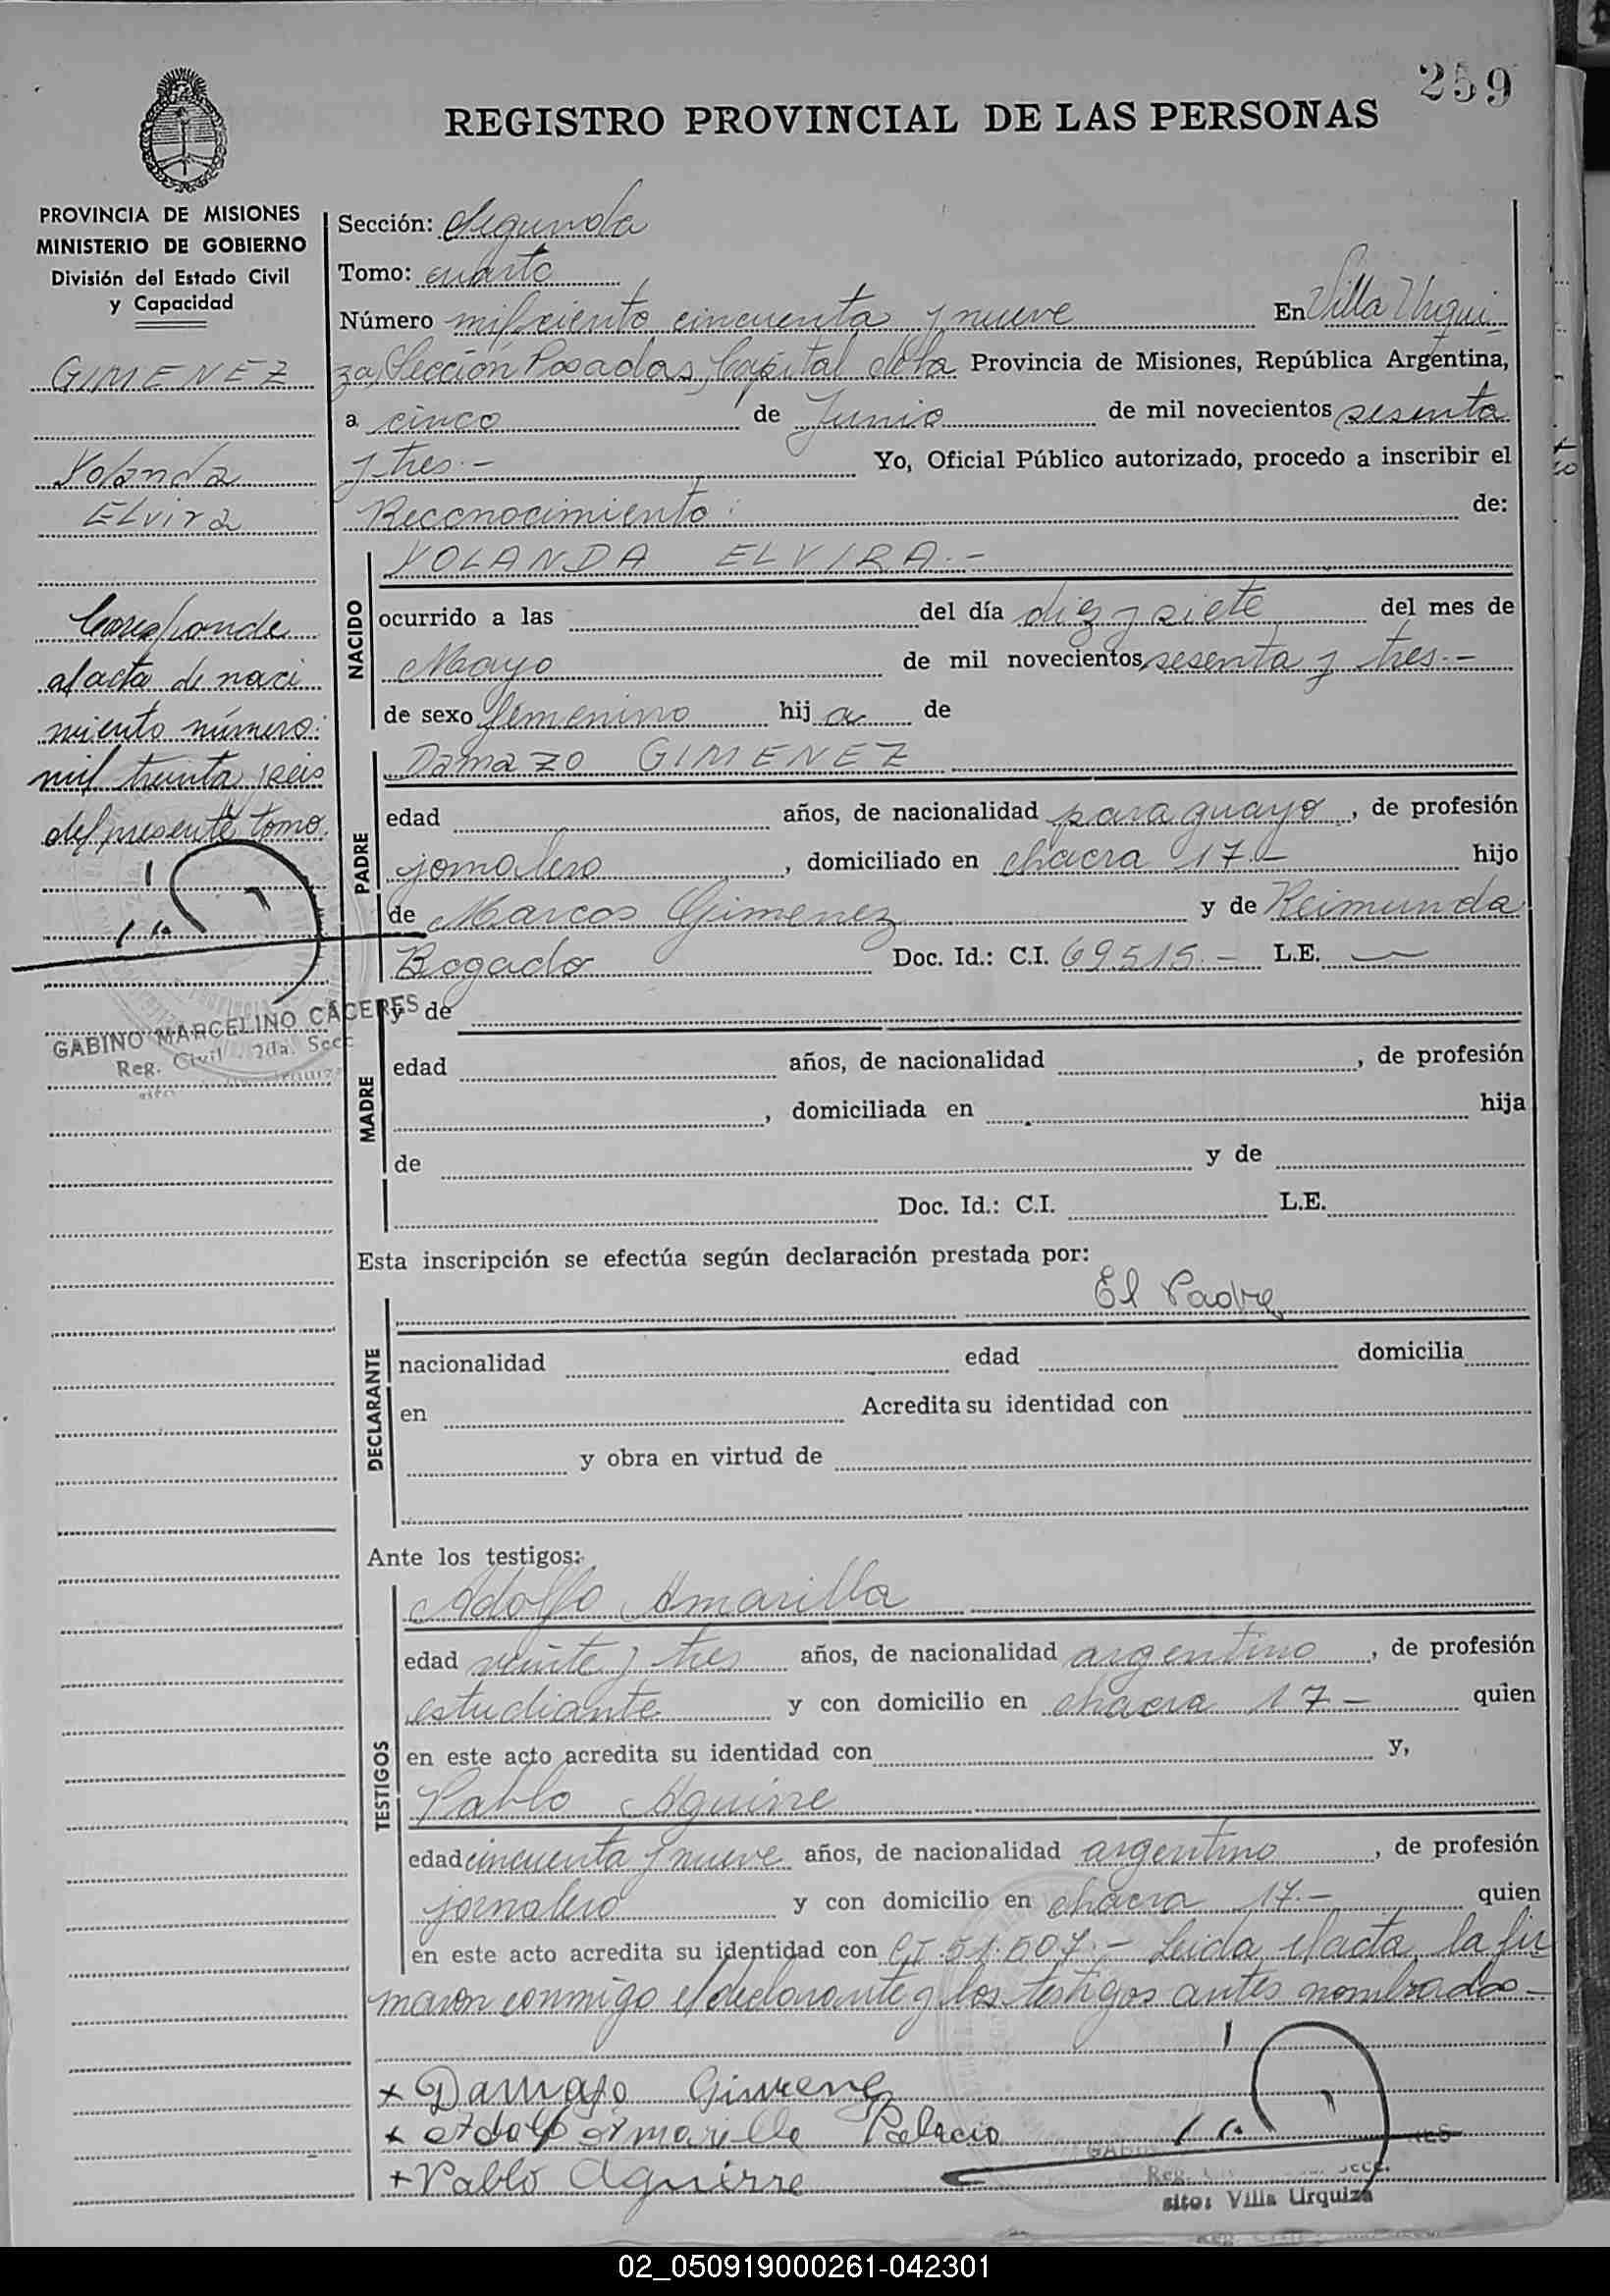 259
REGISTRO PROVINCIAL DE LAS PERSONAS
PROVINCIA DE MISIONES
MINISTERIO DE GOBIERNO
División del Estado Civil
y Capacidad
GIMENEZ
Yolanda
Elvira
Corresponde
al acta de naci
miento número:
mil treinta y seis
del presente tomo.
GABINO MARCELINO CACERES
Reg. Civil 2da. Secc
Sección: Segunda
Tomo: cuarto
Número mil ciento cincuenta y nueve En Villa Urqui-
za, Sección Posadas, Capital de la Provincia de Misiones, República Argentina,
a cinco de Junio de mil novecientos sesenta
y tres.- Yo, Oficial Público autorizado, procedo a inscribir el
Reconocimiento: de:
NACIDO
YOLANDA ELVIRA.-
ocurrido a las del día diez y siete del mes de
Mayo de mil novecientos sesenta y tres.-
de sexo femenino hija de
PADRE
Damazo GIMENEZ
edad años, de nacionalidad paraguayo, de profesión
jornalero, domiciliado en chacra 17.- hijo
de Marcos Gimenez y de Reimunda
Bogado Doc. Id.: C.I. 69.515.- L.E. —
MADRE
y de
edad años, de nacionalidad , de profesión
, domiciliada en hija
de y de
Doc. Id.: C.I. L.E.
Esta inscripción se efectúa según declaración prestada por:
El Padre
DECLARANTE
nacionalidad edad domicilia
en Acredita su identidad con
y obra en virtud de
Ante los testigos:
TESTIGOS
Adolfo Amarilla
edad veinte y tres años, de nacionalidad argentino, de profesión
estudiante y con domicilio en chacra 17- quien
en este acto acredita su identidad con y,
Pablo Aguirre
edad cincuenta y nueve años, de nacionalidad argentino, de profesión
jornalero y con domicilio en chacra 17.- quien
en este acto acredita su identidad con CI 51.507.- Leida el acta, la fir
maron conmigo el declarante y los testigos antes nombrados-
+ Damazo Gimenez
+ Adolfo Amarilla Palacio
+ Pablo Aguirre
sito: Villa Urquiza
02_050919000261-042301